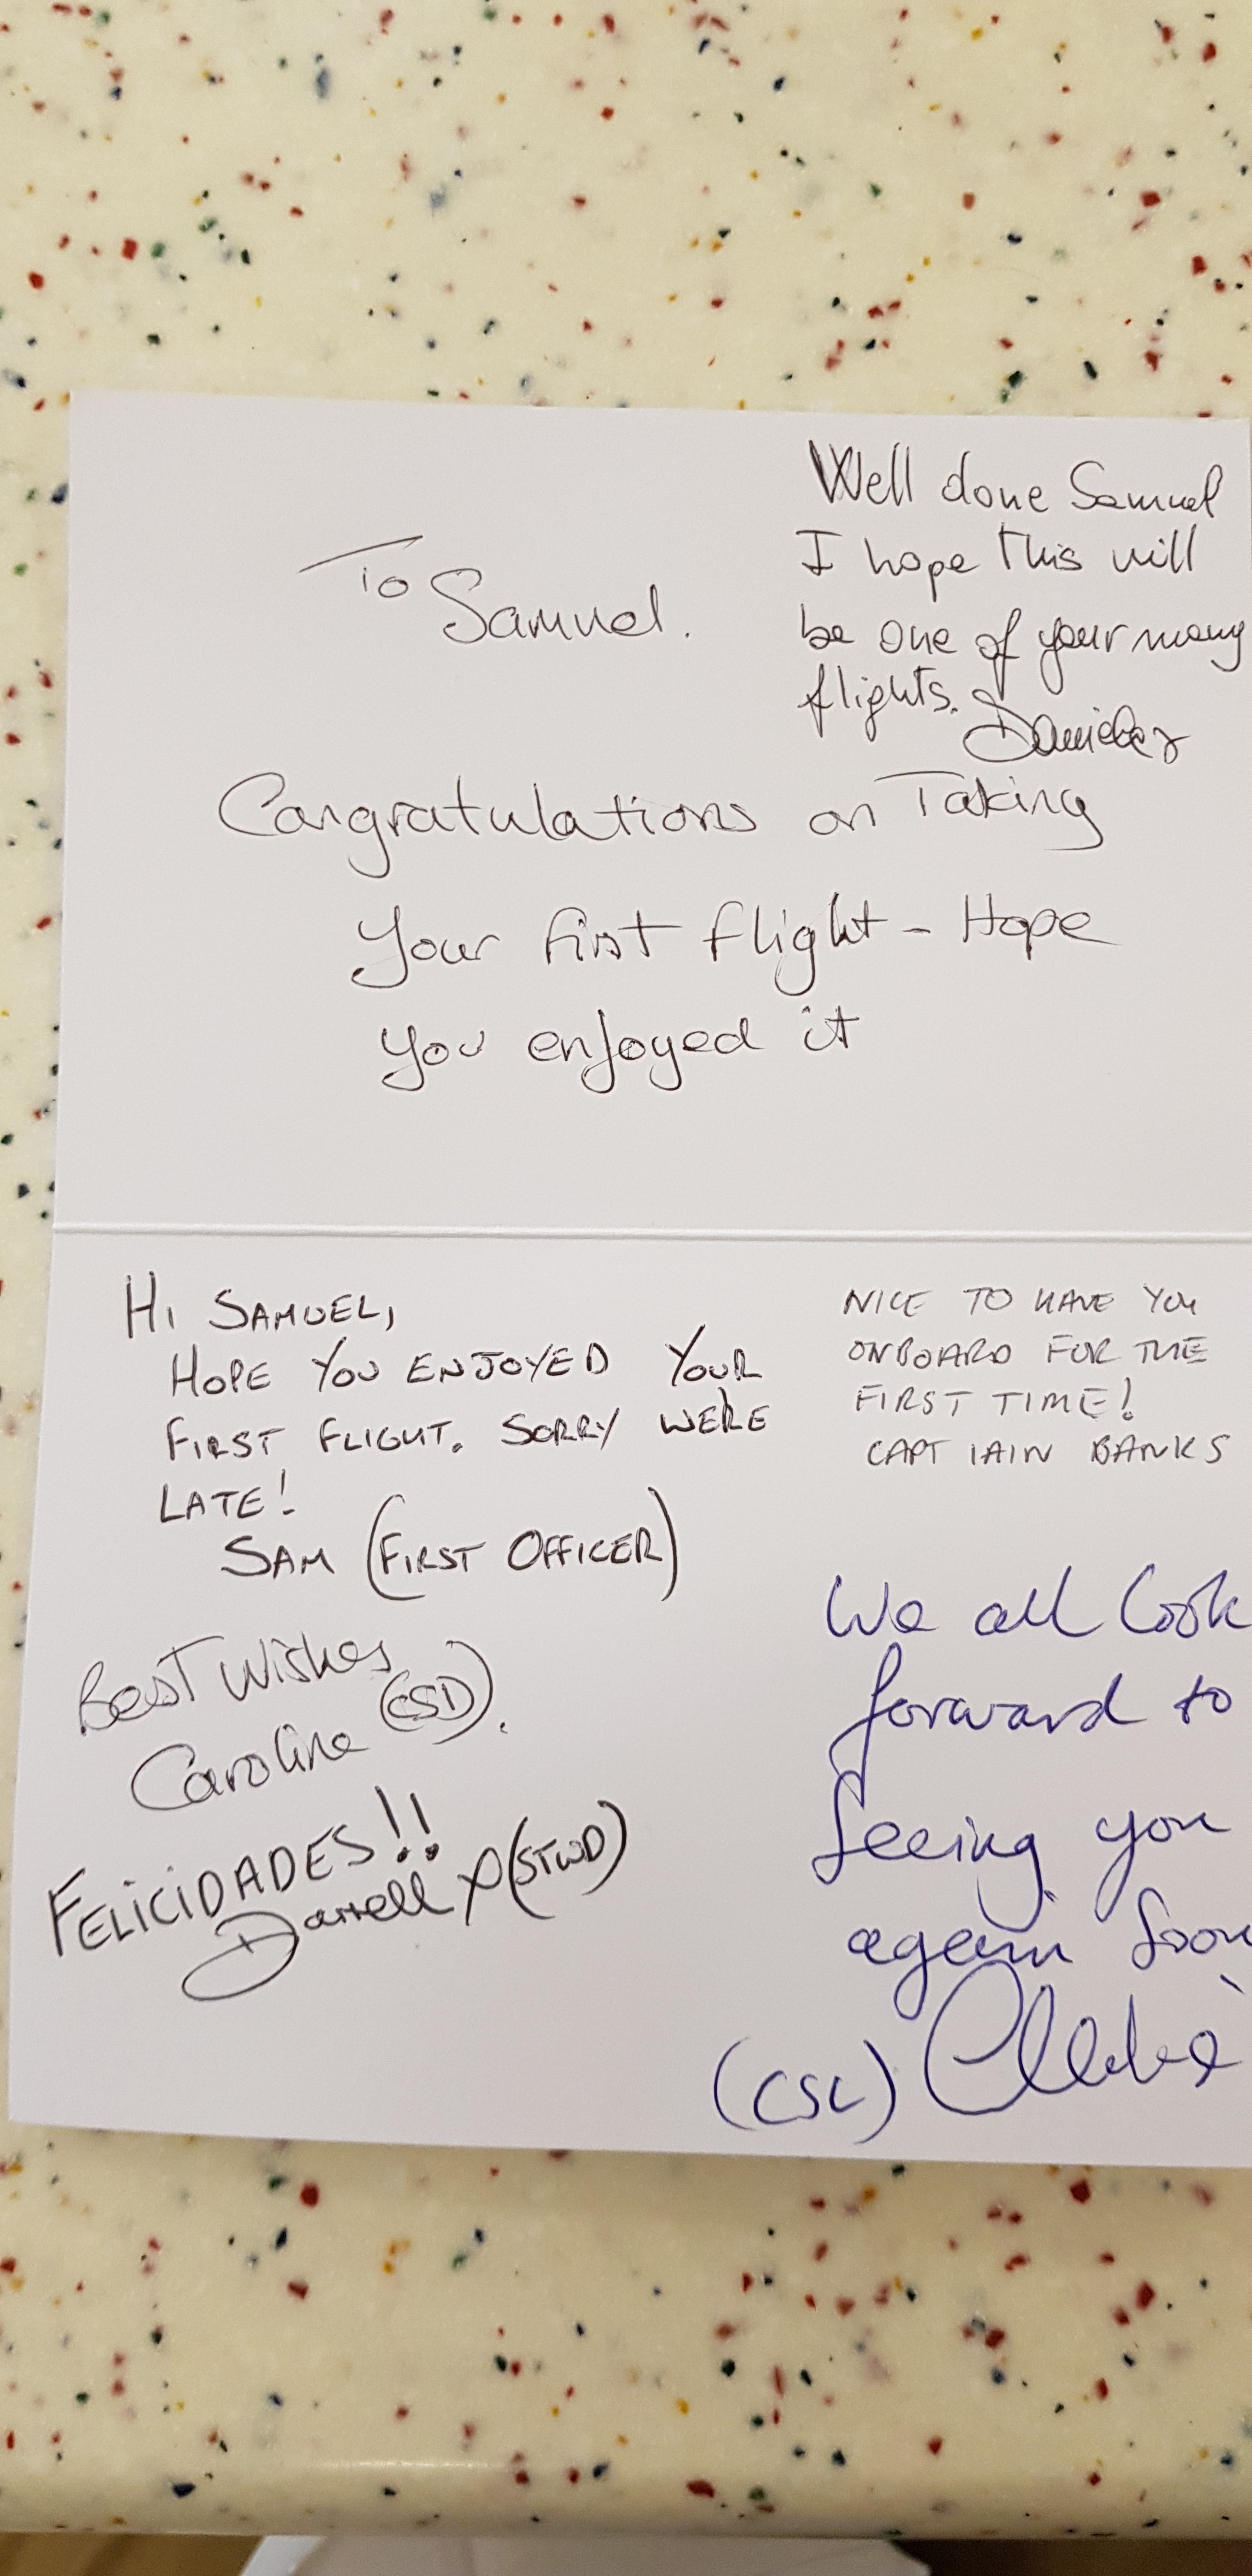 To
Samuel.
Well done Samuel
I hope this will
be one of your many
flights.
Congratulations on Taking
Your first flight - Hope
you enjoyed it
HI SAMUEL,
HOPE YOU ENJOYED YOUR
FIRST FLIGHT. SORRY WE'RE
LATE!
SAM (FIRST OFFICER)
Best Wishes
Caroline (CSD).
FELICIDADES!!
Darrell X (STWD)
NICE TO HAVE YOU
ONBOARD FOR THE
FIRST TIME!
CAPT IAIN BANKS
We all look
forward to
seeing you
again soon
(CSL)